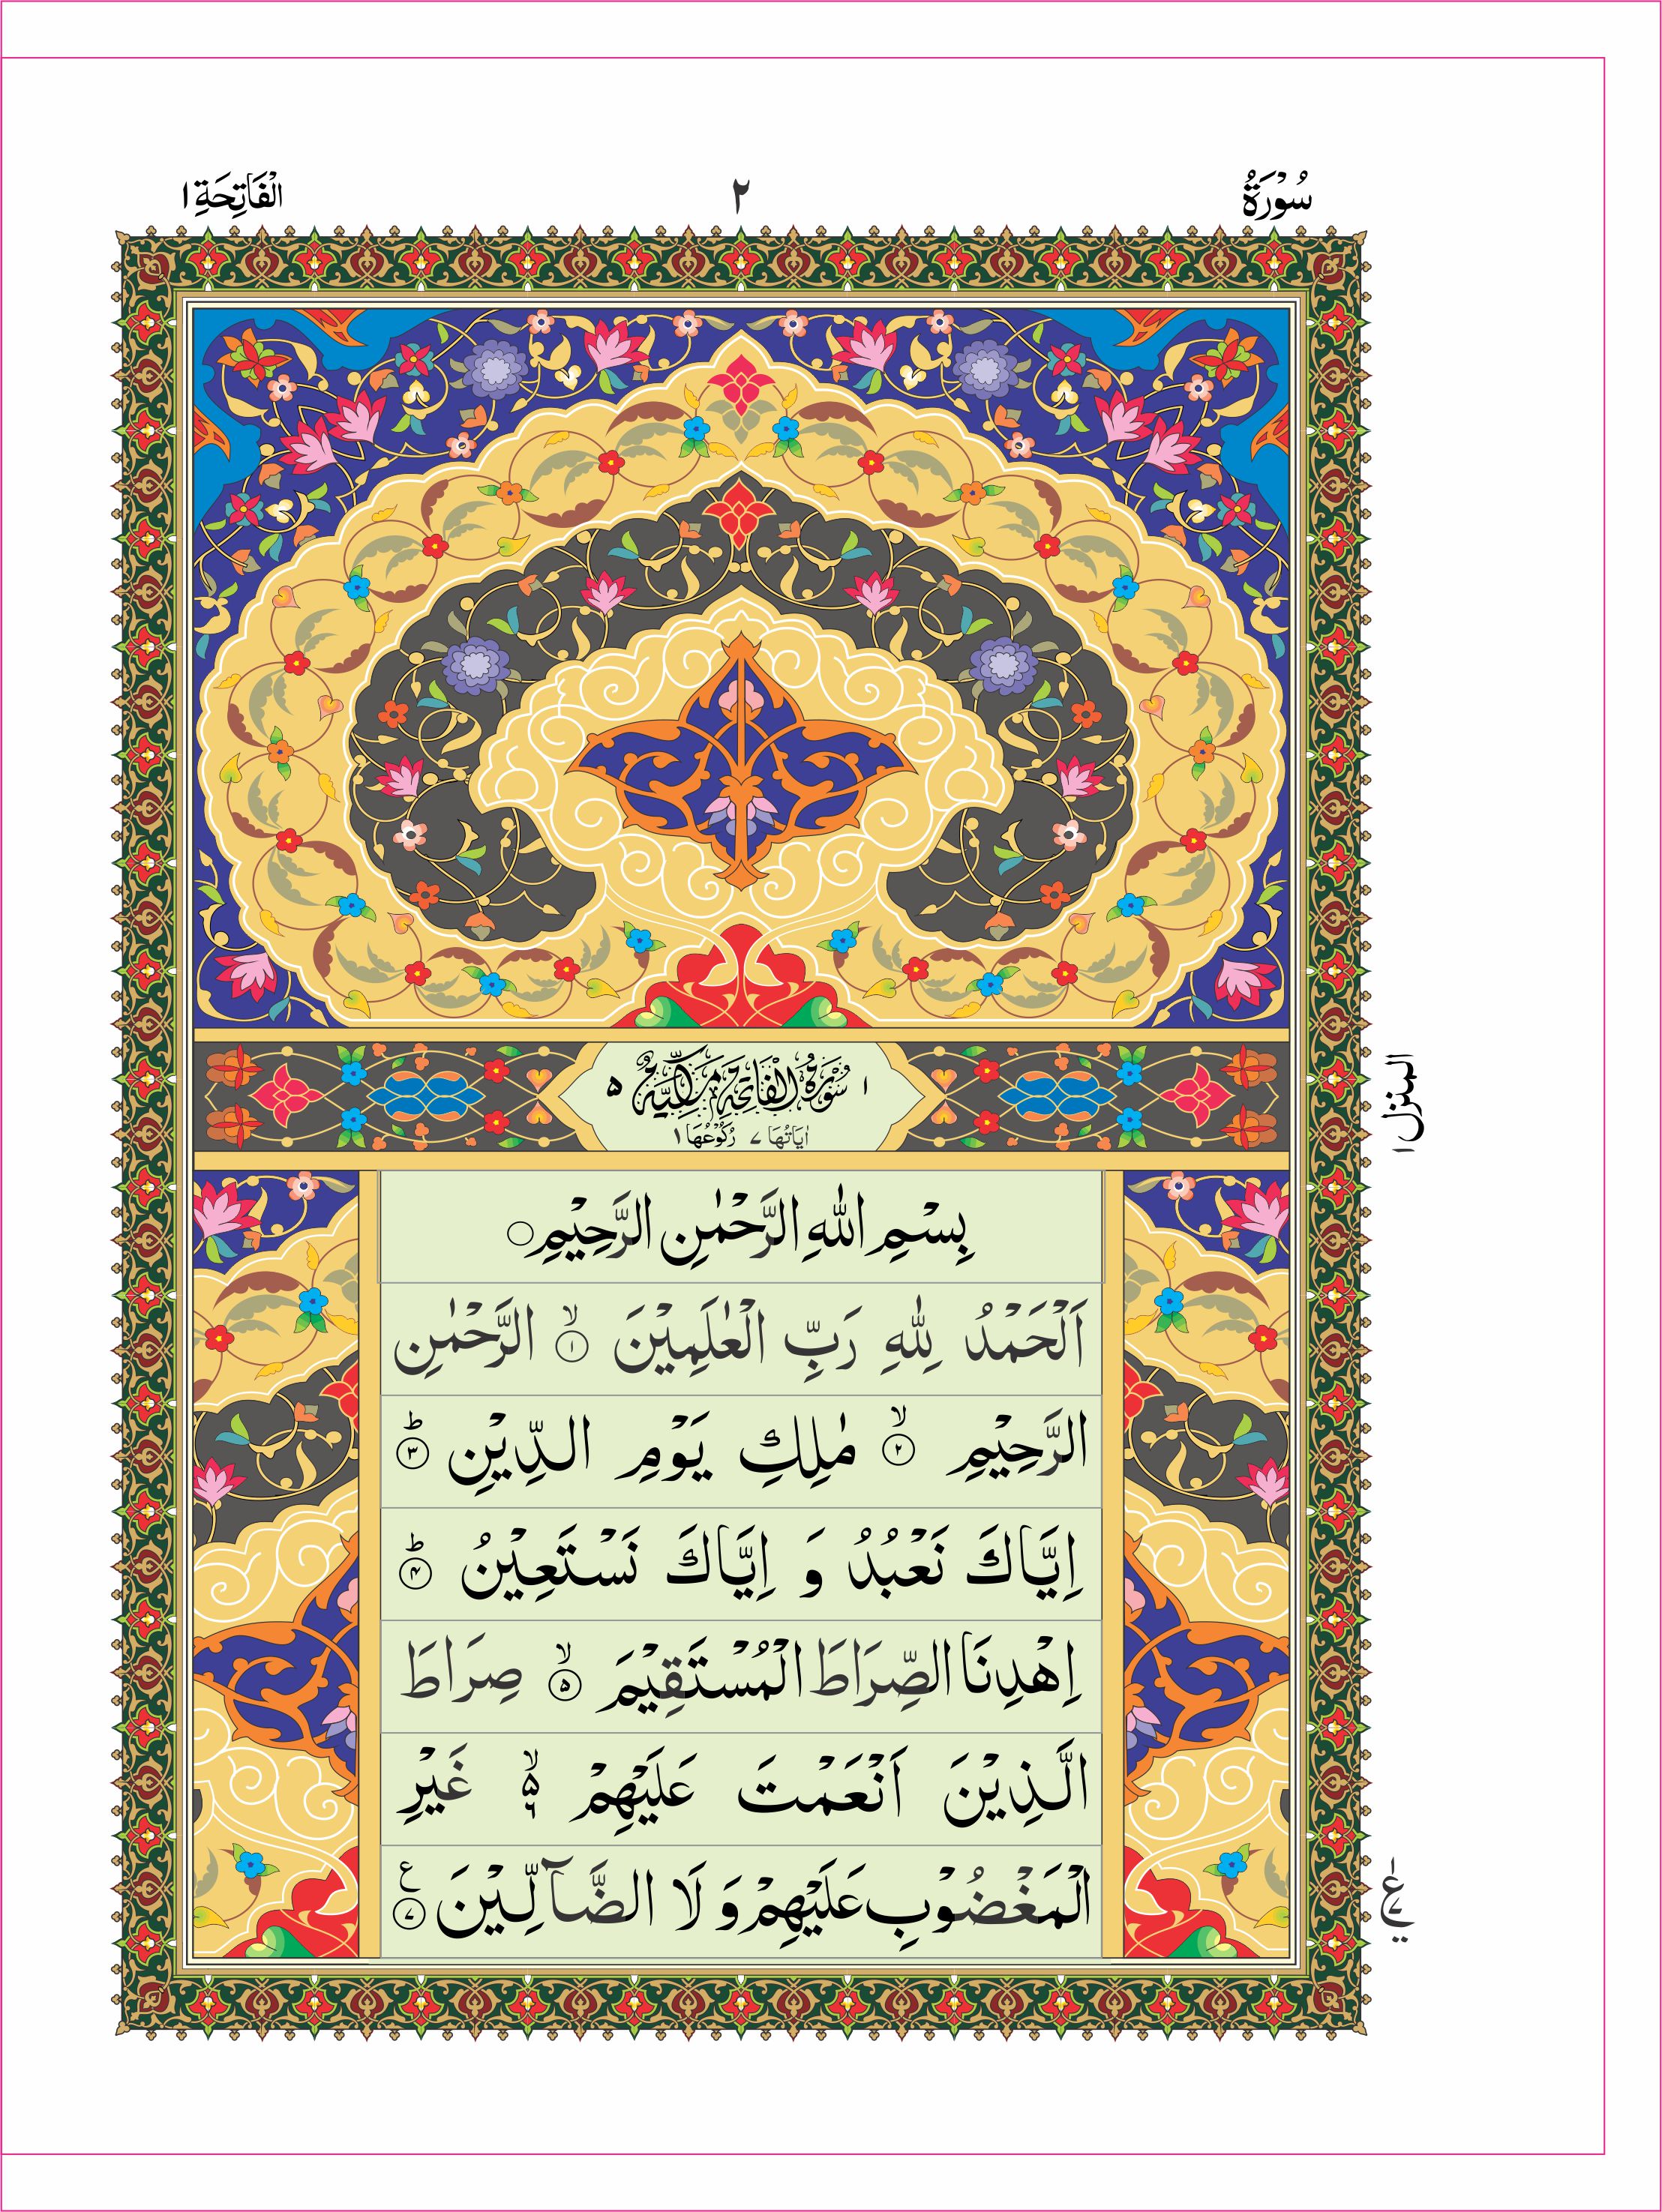 سُوْرَةُ ٢ الْفَاتِحَةِ ١
١ سُوْرَةُ الْفَاتِحَةِ مَكِّيَّةٌ ۵
اٰيَاتُهَا ٧ رُكُوْعُهَا ١
بِسْمِ اللهِ الرَّحْمٰنِ الرَّحِيْمِ ○
اَلْحَمْدُ لِلّٰهِ رَبِّ الْعٰلَمِيْنَ ۙ﴿۱﴾ الرَّحْمٰنِ
الرَّحِيْمِ ۙ﴿۲﴾ مٰلِكِ يَوْمِ الدِّيْنِ ؕ﴿۳﴾
اِيَّاكَ نَعْبُدُ وَ اِيَّاكَ نَسْتَعِيْنُ ؕ﴿۴﴾
اِهْدِنَا الصِّرَاطَ الْمُسْتَقِيْمَ ۙ﴿۵﴾ صِرَاطَ
الَّذِيْنَ اَنْعَمْتَ عَلَيْهِمْ ۙ۵ ۶ غَيْرِ
الْمَغْضُوْبِ عَلَيْهِمْ وَ لَا الضَّآلِّيْنَ ﴿۷﴾ ع
المنزل ١
ع